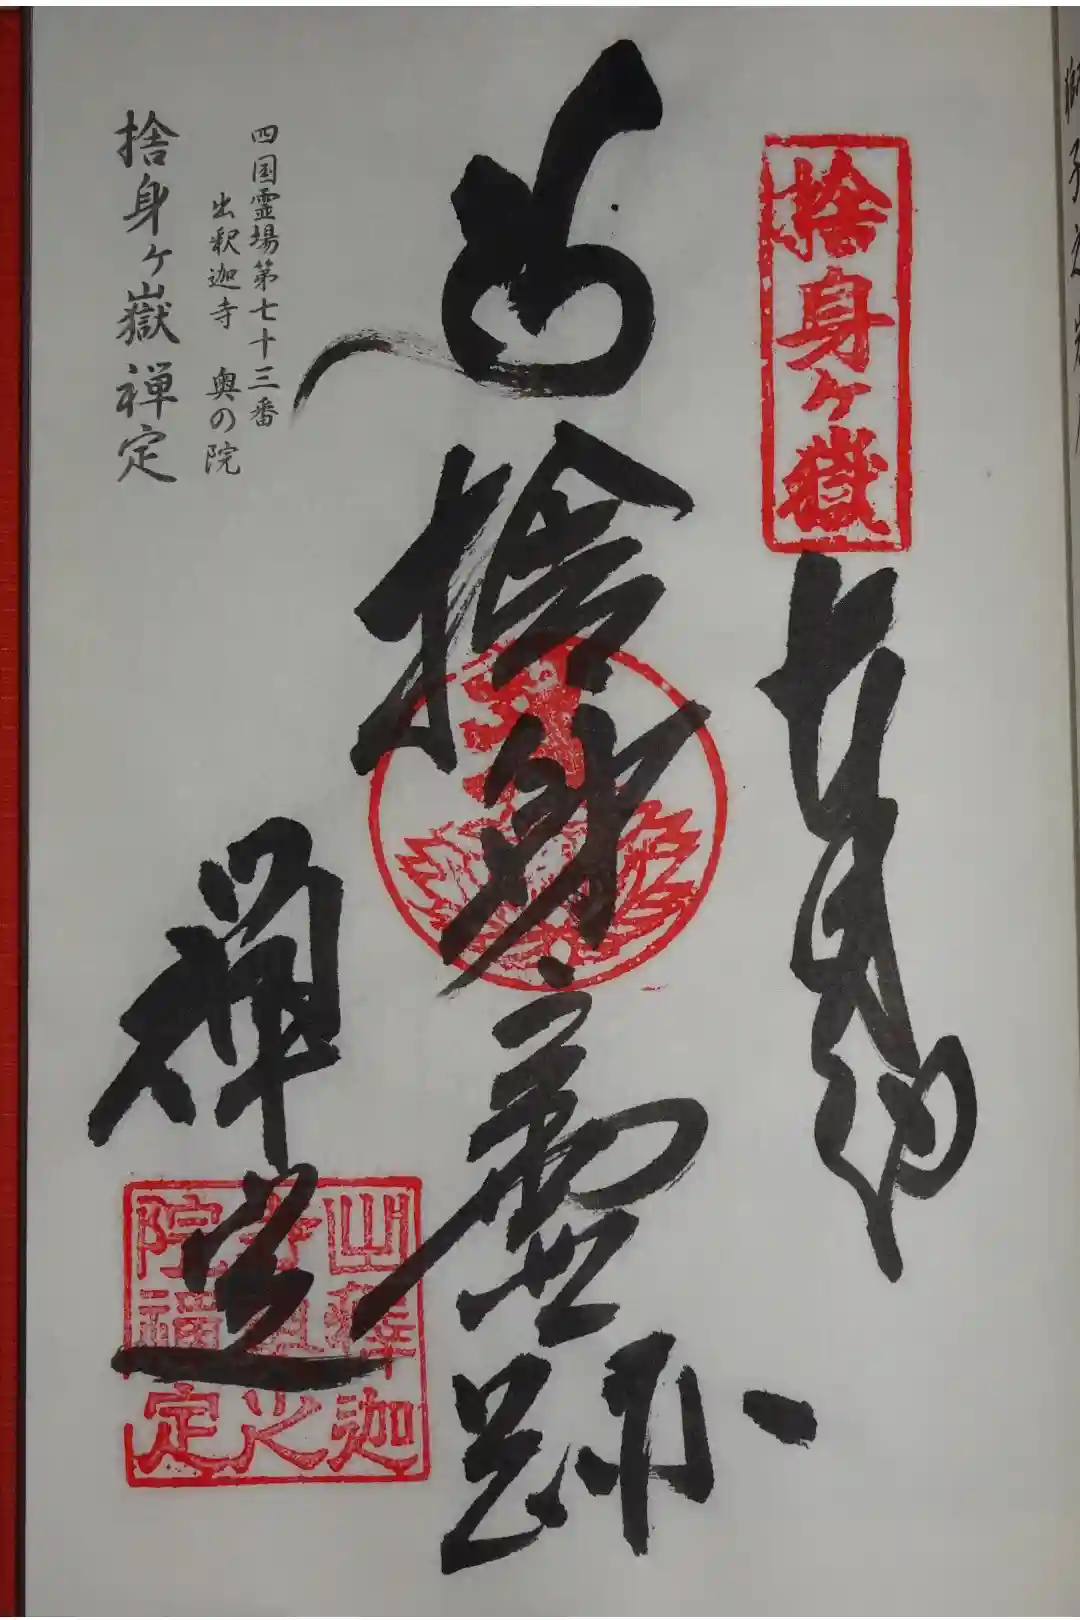 捨身ヶ嶽
奉納
捨身霊跡
禅定
四国霊場第七十三番
出釈迦寺 奥の院
捨身ヶ嶽禅定
出釈迦
寺奥之
院禅定